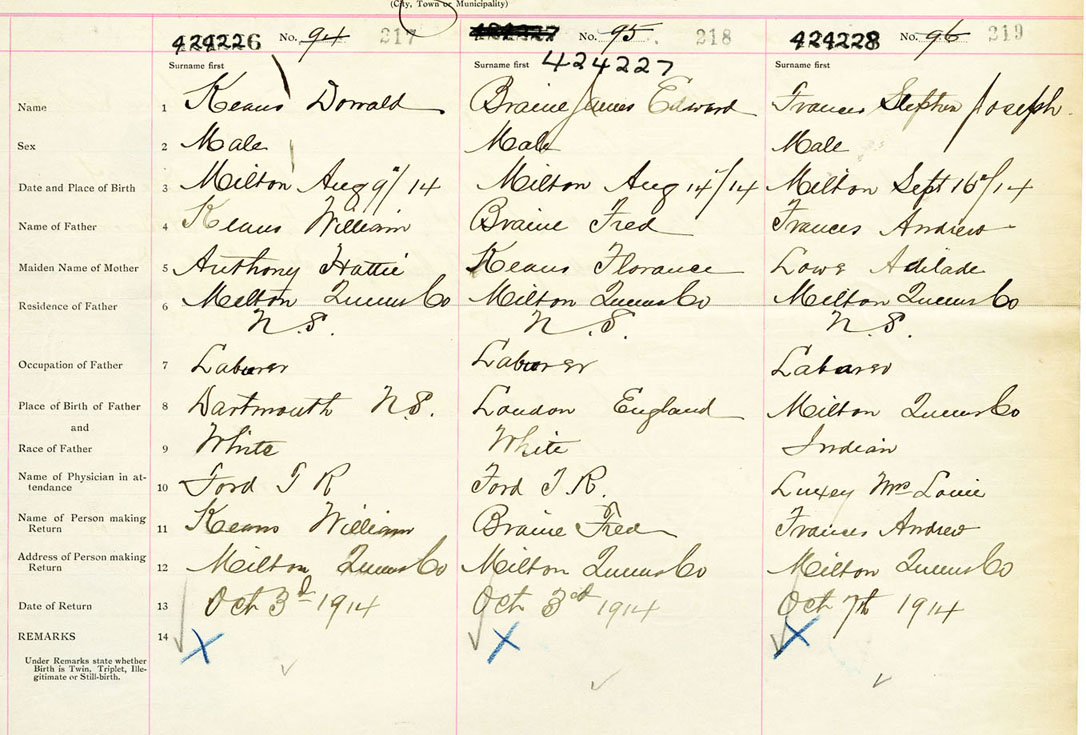 (City, Town or Municipality)
424226 No. 94 217 No. 95 218 424228 No. 96 219
Surname first Surname first 424227 Surname first
Name 1 Keans Donald Braine James Edward Frances Stephen Joseph
Sex 2 Male Male Male
Date and Place of Birth 3 Milton Aug 9"/14 Milton Aug 14"/14 Milton Sept 16"/14
Name of Father 4 Keans William Braine Fred Frances Andrew
Maiden Name of Mother 5 Anthony Hattie Keans Florance Lowe Adilade
Residence of Father 6 Milton Queens Co Milton Queens Co Milton Queens Co
N.S. N.S. N.S.
Occupation of Father 7 Laburer Laburer Laburer
Place of Birth of Father 8 Dartmouth N.S. London England Milton Queens Co
and
Race of Father 9 White White Indian
Name of Physician in at-
tendance 10 Ford T R Ford T.R. Luxey Mrs Louie
Name of Person making
Return 11 Keans William Braine Fred Frances Andrew
Address of Person making
Return 12 Milton Queens Co Milton Queens Co Milton Queens Co
Date of Return 13 Oct 3d 1914 Oct 3rd 1914 Oct 7th 1914
REMARKS 14
Under Remarks state whether
Birth is Twin, Triplet, Ille-
gitimate or Still-birth.